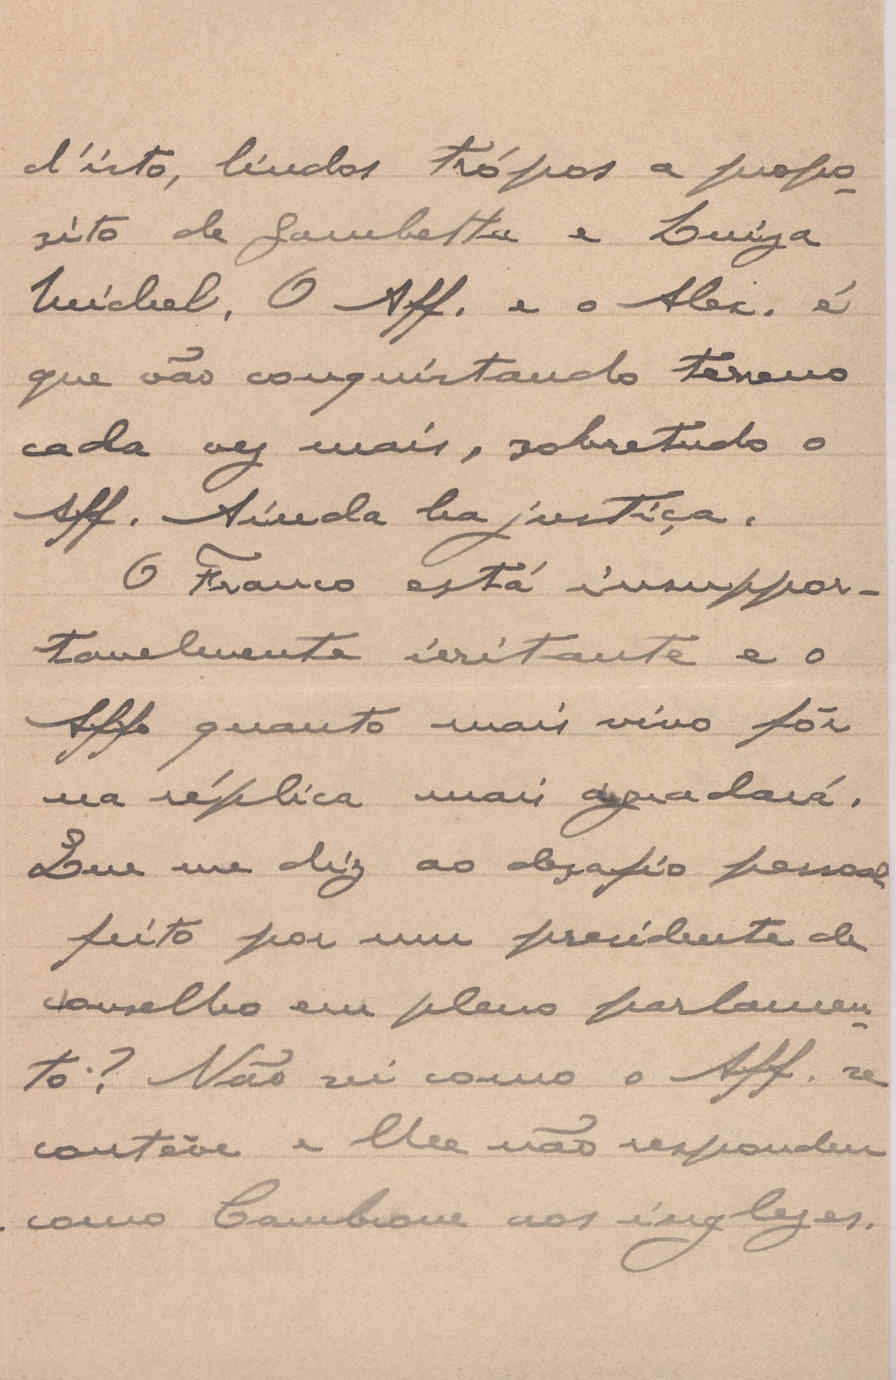 d'isto, lindos trópos a propo-
sito de Gambetta e Luiza
Michel. O Aff. e o Alex. é
que vão conquistando terreno
cada vez mais, sobretudo o
Aff. Ainda ha justiça.
O Franco está insuppor-
tavelmente irritante e o
Aff. quanto mais vivo fôr
na réplica mais agradará.
Que me diz ao desafio pessoal
feito por um presidente de
conselho em pleno parlamen-
to? Não sei como o Aff. se
contêve e lhe não respondeu
como Cambrone aos inglezes.